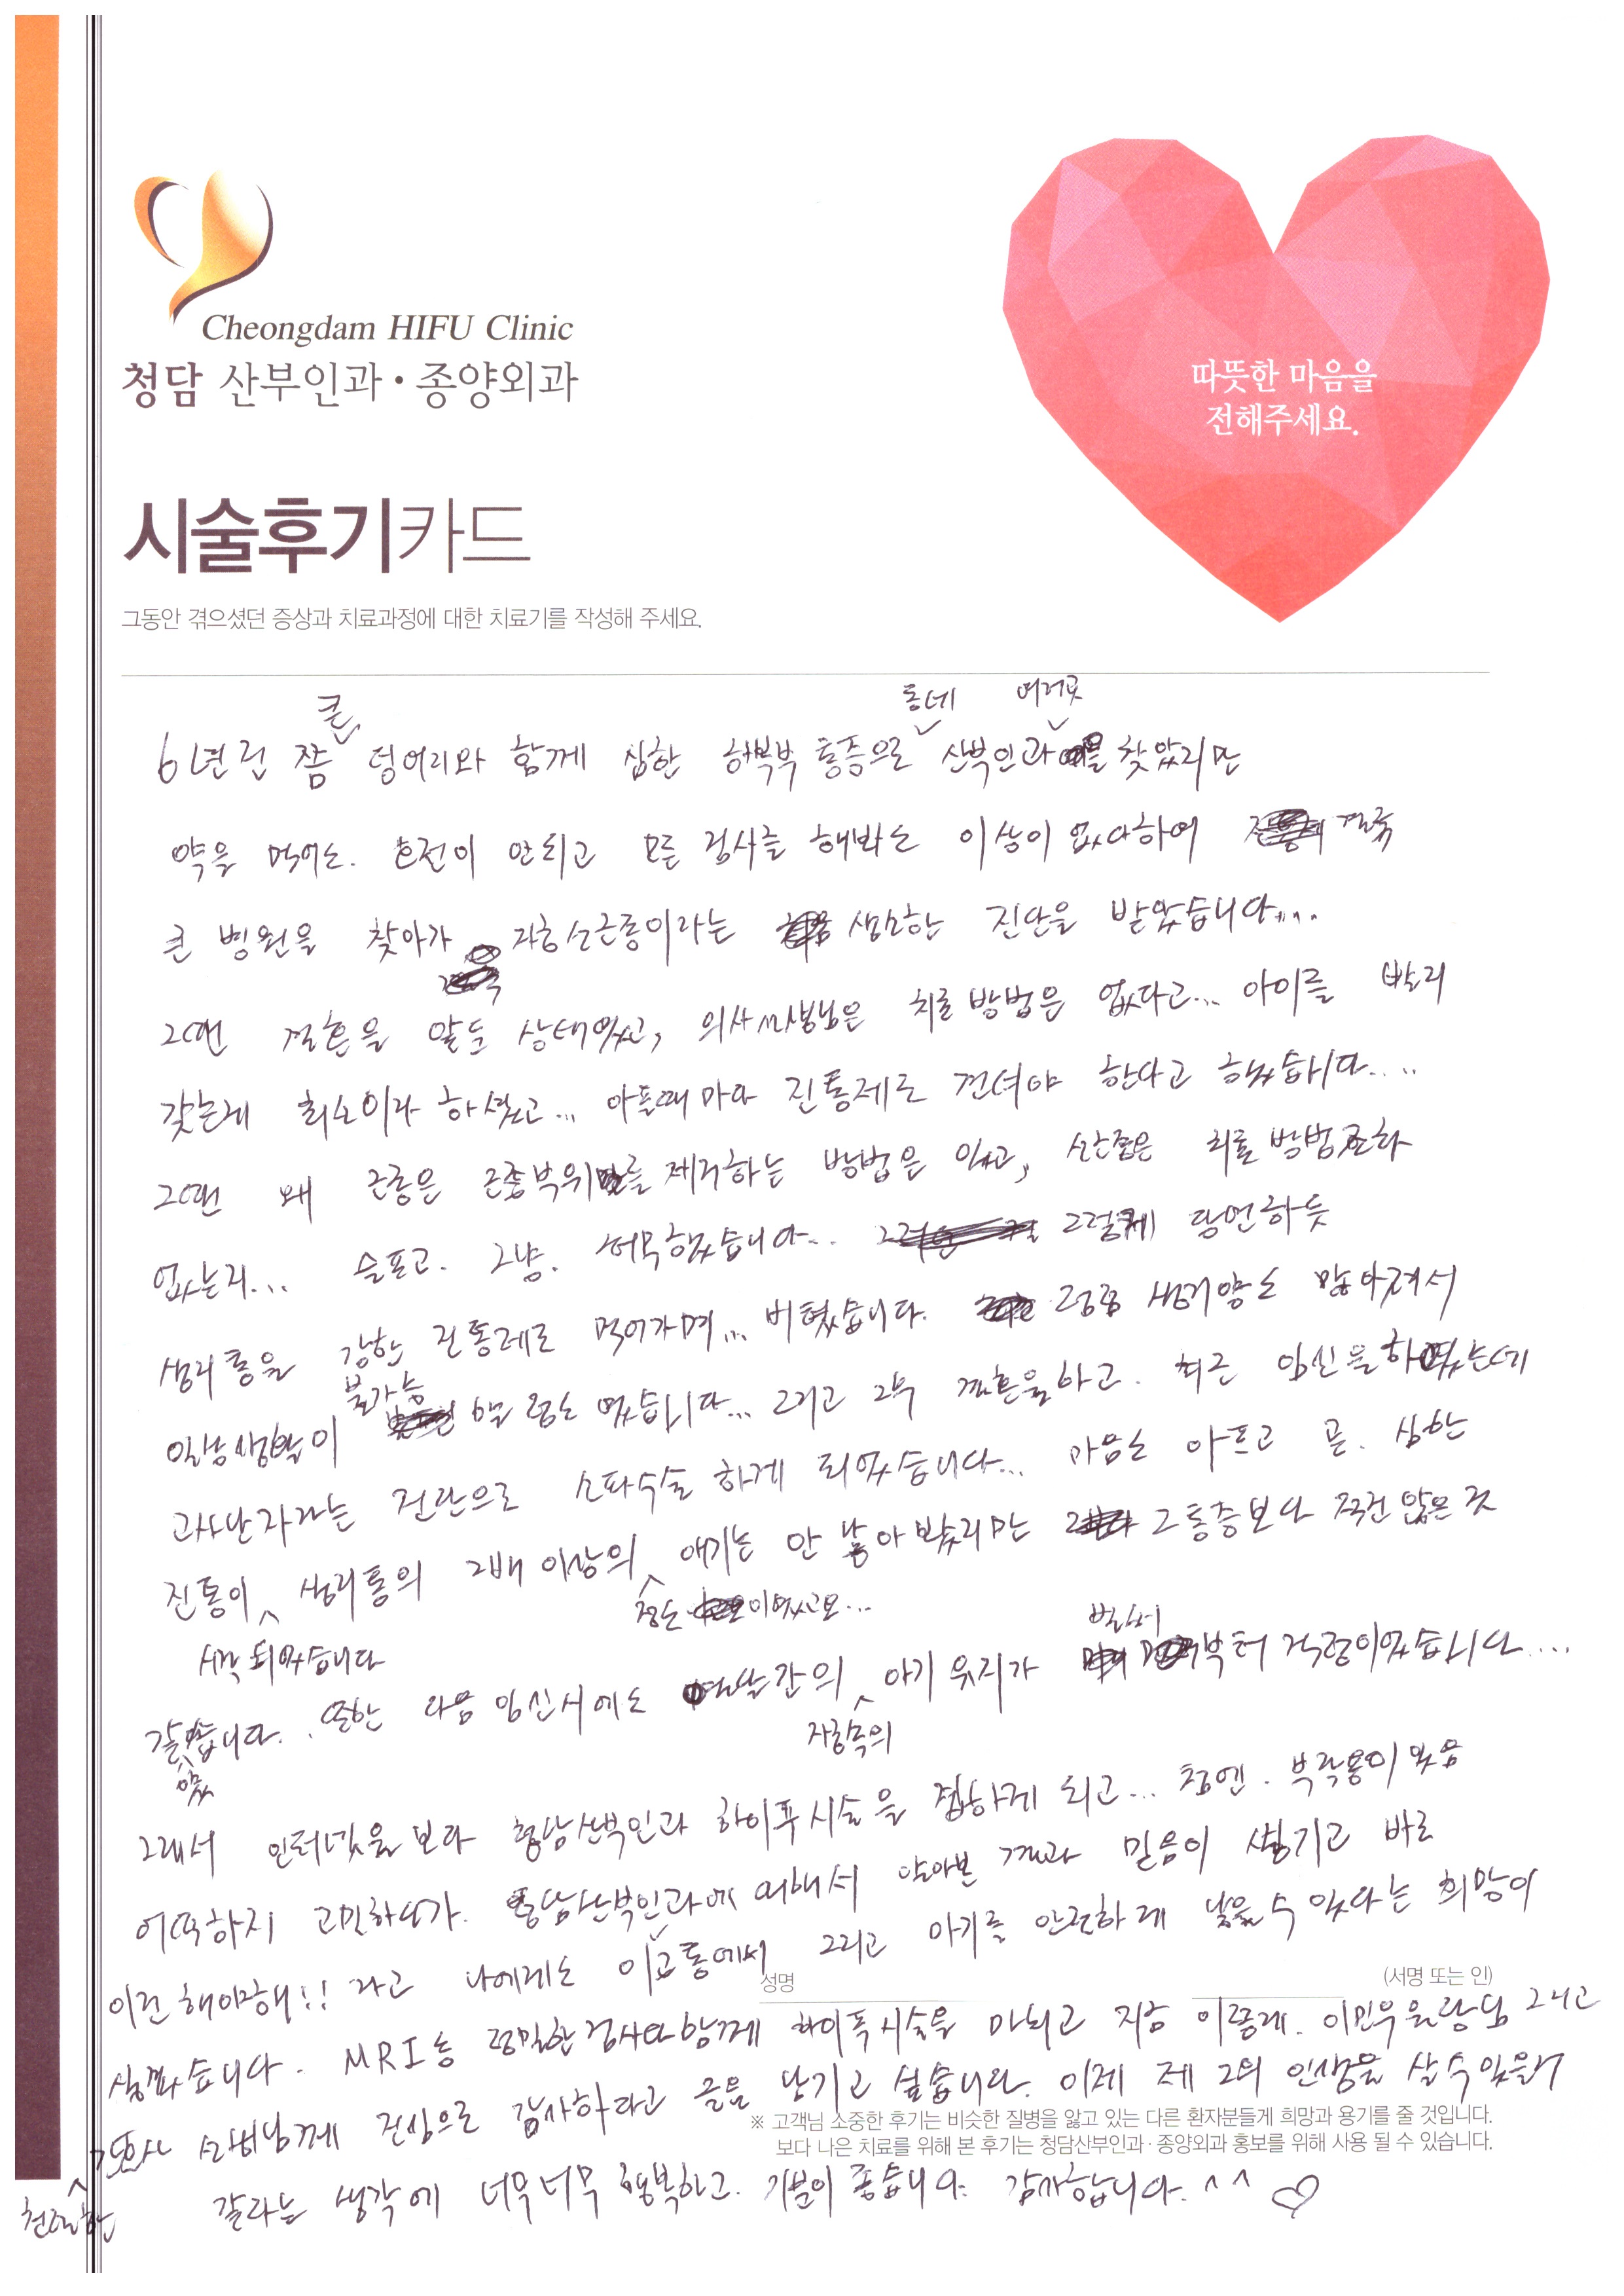 Cheongdam HIFU Clinic
청담 산부인과·종양외과
따뜻한 마음을
전해주세요.
시술후기카드
그동안 겪으셨던 증상과 치료과정에 대한 치료기를 작성해 주세요.
큰 동네 여러곳
6년전 쯤 덩어리와 함께 심한 하복부 통증으로 산부인과를 찾았지만
약을 먹어도. 호전이 안되고 모든 검사를 해봐도 이상이 없다하여 결국
큰 병원을 찾아가 자궁선근종이라는 생소한 진단을 받았습니다....
20대 결혼을 앞둔 상태였고, 의사선생님은 치료방법은 없다고... 아이를 빨리
갖는게 최선이라 하셨고... 아플때마다 진통제로 견뎌야 한다고 했습니다....
왜 근종은 근종부위를 제거하는 방법은 있고, 선근종은 치료방법조차
없는지... 슬프고. 그냥. 허무했습니다... 그렇게 당연하듯
생리통을 강한 진통제로 먹어가며... 버텼습니다. 점점 생리양도 많아져서
불가능
일상생활이 할 정도 였습니다... 그리고 2년 결혼을하고. 최근 임신을하였는데
고사난자라는 진단으로 소파수술 하게 되었습니다... 마음도 아프고 곧. 심한
진통이 생리통의 2배 이상의 애기는 안 낳아 봤지만 그통증보다 적진 않은 것
시작 되었습니다
정도 이였고요...
같습니다. 또한 다음 임신시에도 열달간의 아기 유지가 벌써부터 걱정이였습니다....
았
자궁속의
그래서 인터넷을 보다 청담산부인과 하이푸시술을 접하게 되고... 첨엔. 부작용이 있음
어떡하지 고민하다가. 청담산부인과에 의해서 알아본 결과 믿음이 생기고 바로
이건 해야해!! 라고 나에게도 이고통에서 그리고 아기를 안전하게 낳을수 있다는 희망이
성명
(서명 또는 인)
생겼습니다. MRI등 정밀한 검사와 함께 하이푸시술을 마치고 지금 이렇게. 이민우원장님 그리고
친절한 간호사 선생님께 진심으로 감사하다고 글을 남기고 싶습니다. 이제 제 2의 인생을 살수있을거
※ 고객님 소중한 후기는 비슷한 질병을 앓고 있는 다른 환자분들게 희망과 용기를 줄 것입니다.
보다 나은 치료를 위해 본 후기는 청담산부인과·종양외과 홍보를 위해 사용 될 수 있습니다.
같다는 생각에 너무너무 행복하고. 기분이 좋습니다. 감사합니다. ^^ ♡